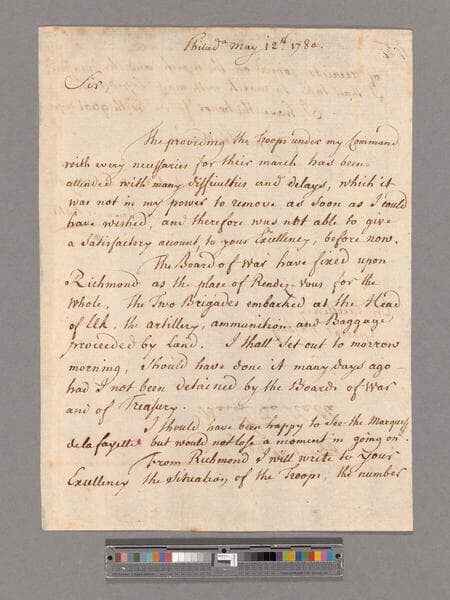 Philadᵃ May 12ᵗʰ 1780.
Sir
The providing the Troops under my Command
with every necessaries for their march has been
attended with many difficulties and delays, which it
was not in my power to remove as soon as I could
have wished, and therefore was not able to give
a satisfactory account to your Excellency, before now.
The Board of War have fixed upon
Richmond as the place of Rendez-vous for the
whole. The Two Brigades embarked at the Head
of Elk, the artillery, ammunition and Baggage
proceeded by Land. I shall set out to morrow
morning, should have done it many days ago
had I not been detained by the Boards of War
and of Treasury.
I should have been happy to See the Marquess
de la fayette but would not lose a moment in going on.
From Richmond I will write to Your
Excellency the Situation of the Troops, the number